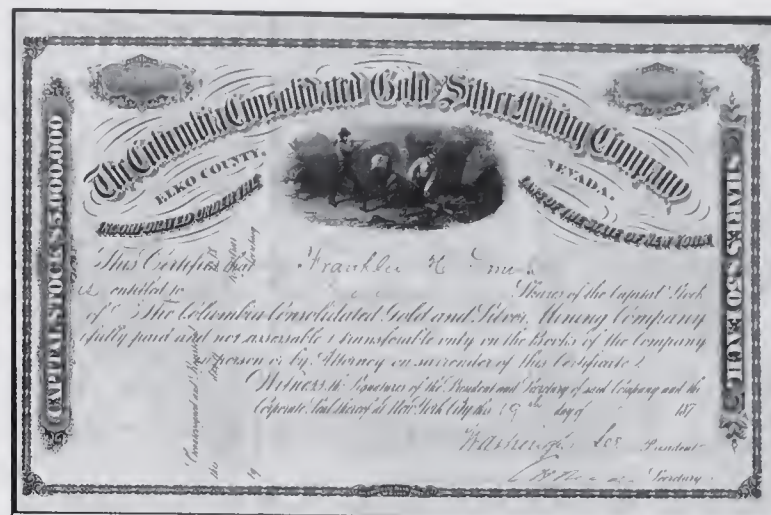 The Columbia Consolidated Gold & Silver Mining Company
ELKO COUNTY, NEVADA.
INCORPORATED UNDER THE LAWS OF THE STATE OF NEW YORK
CAPITAL STOCK $5,000,000
SHARES $50 EACH
This Certifies that Franklin H.
is entitled to Shares of the Capital Stock
of The Columbia Consolidated Gold and Silver Mining Company
fully paid and not assessable transferable only on the Books of the Company
in person or by Attorney on surrender of this Certificate
Witness the Signatures of the President and Secretary of said Company and the
Corporate Seal thereof at New York City this 19th day of 187
Washington Lee President
Secretary
Countersigned and Registered
this 19